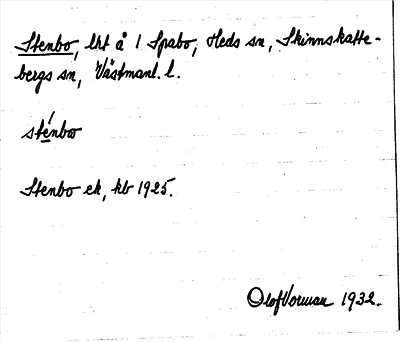 Stenbo, lht å 1 Spabo, Heds sn, Skinnskatte-
bergs sn, Västmanl. l.
sténbω
Stenbo ek, kb 1925.
Olof Vorman 1932.